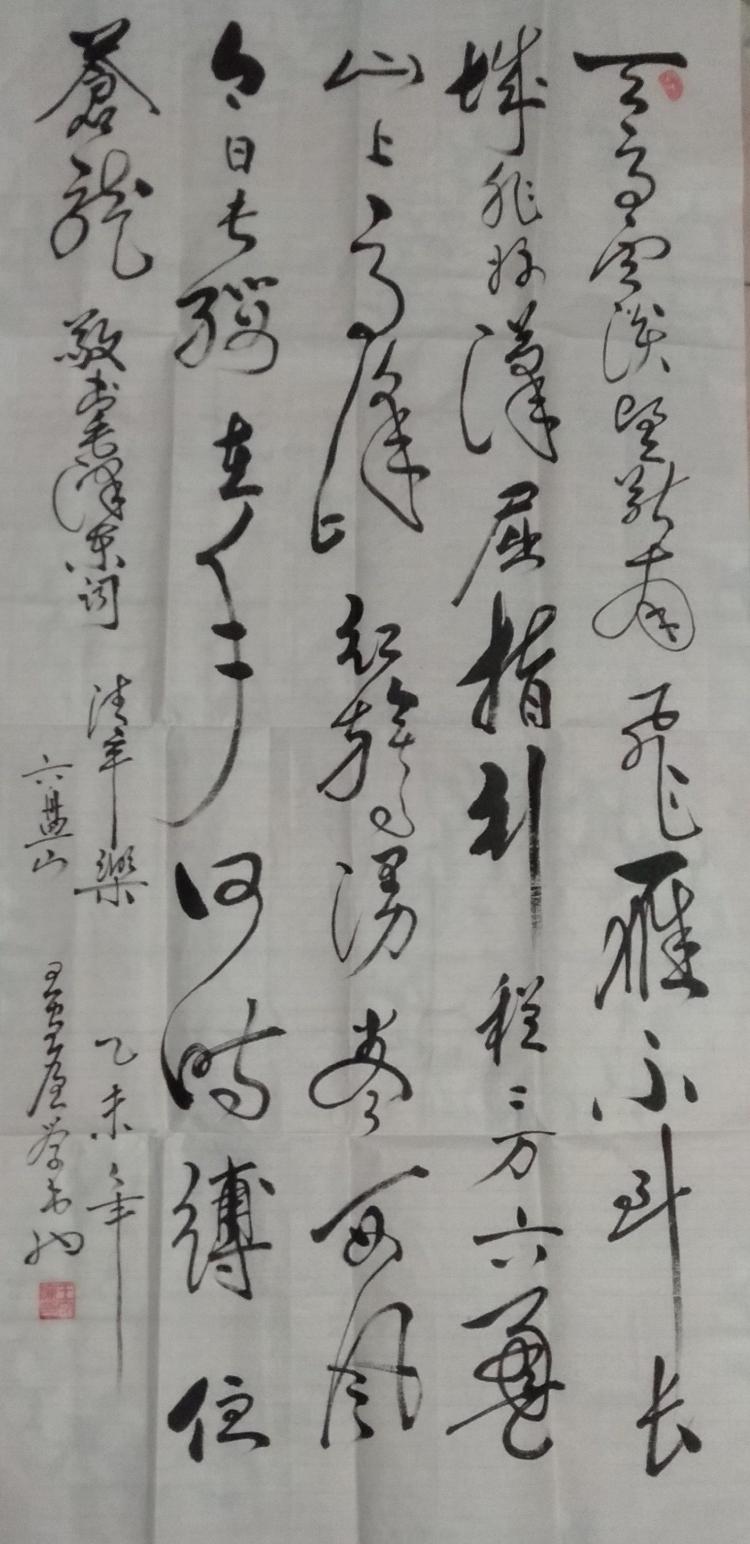 天高雲淡望断南飛雁不到长
城非好漢屈指行程二万六盤
山上高峰红旗漫卷西风
今日长缨在手何时縛住
蒼龍 敬书毛泽东词
清平樂 乙未年
六盘山